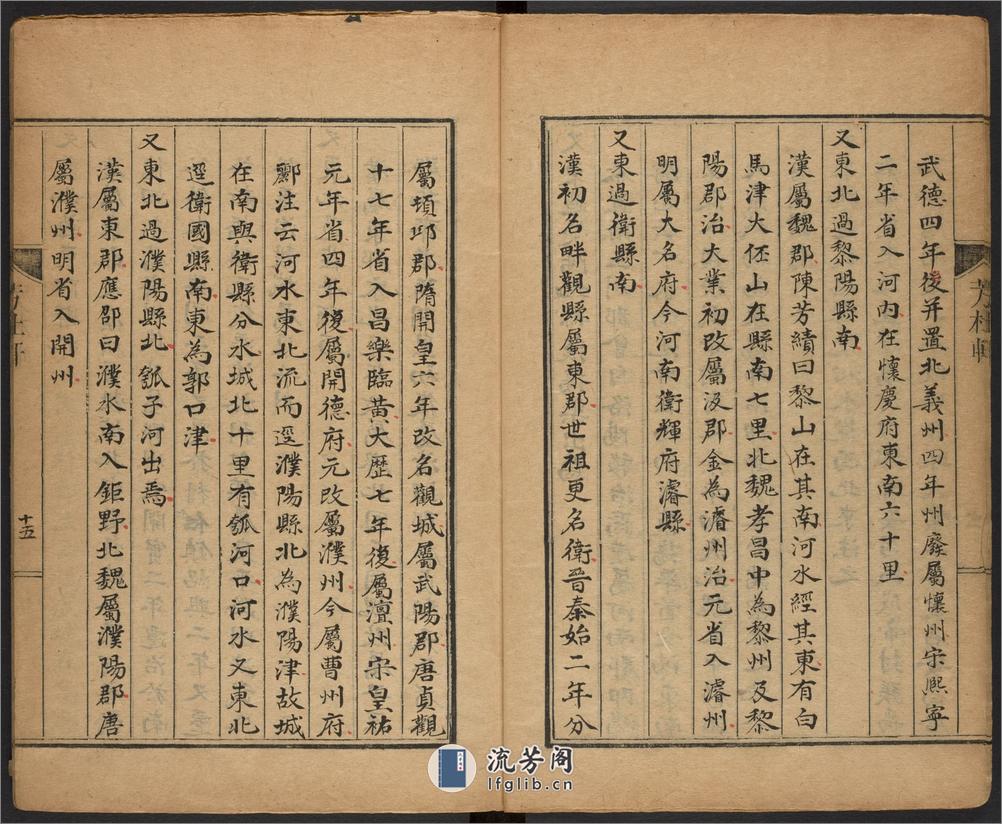 武德四年後并置北義州四年州廢屬懷州宋熙寧
二年省入河內在懷慶府東南六十里
又東北過黎陽縣南
漢屬魏郡陳芳績曰黎山在其南河水經其東有白
馬津大伾山在縣南七里北魏孝昌中為黎州及黎
陽郡治大業初改屬汲郡金為濬州治元省入濬州
明屬大名府今河南衛輝府濬縣
又東過衛縣南
漢初名畔觀縣屬東郡世祖更名衛晉泰始二年分
芳杜軒
屬頓邱郡隋開皇六年改名觀城屬武陽郡唐貞觀
十七年省入昌樂臨黃大歷七年復屬澶州宋皇祐
元年省四年復屬開德府元改屬濮州今屬曹州府
酈注云河水東北流而逕濮陽縣北為濮陽津故城
在南與衛縣分水城北十里有瓠河口河水又東北
逕衛國縣南東為郭口津
又東北過濮陽縣北瓠子河出焉
漢屬東郡應邵曰濮水南入鉅野北魏屬濮陽郡唐
屬濮州明省入開州
十五
流芳阁
lfglib.cn